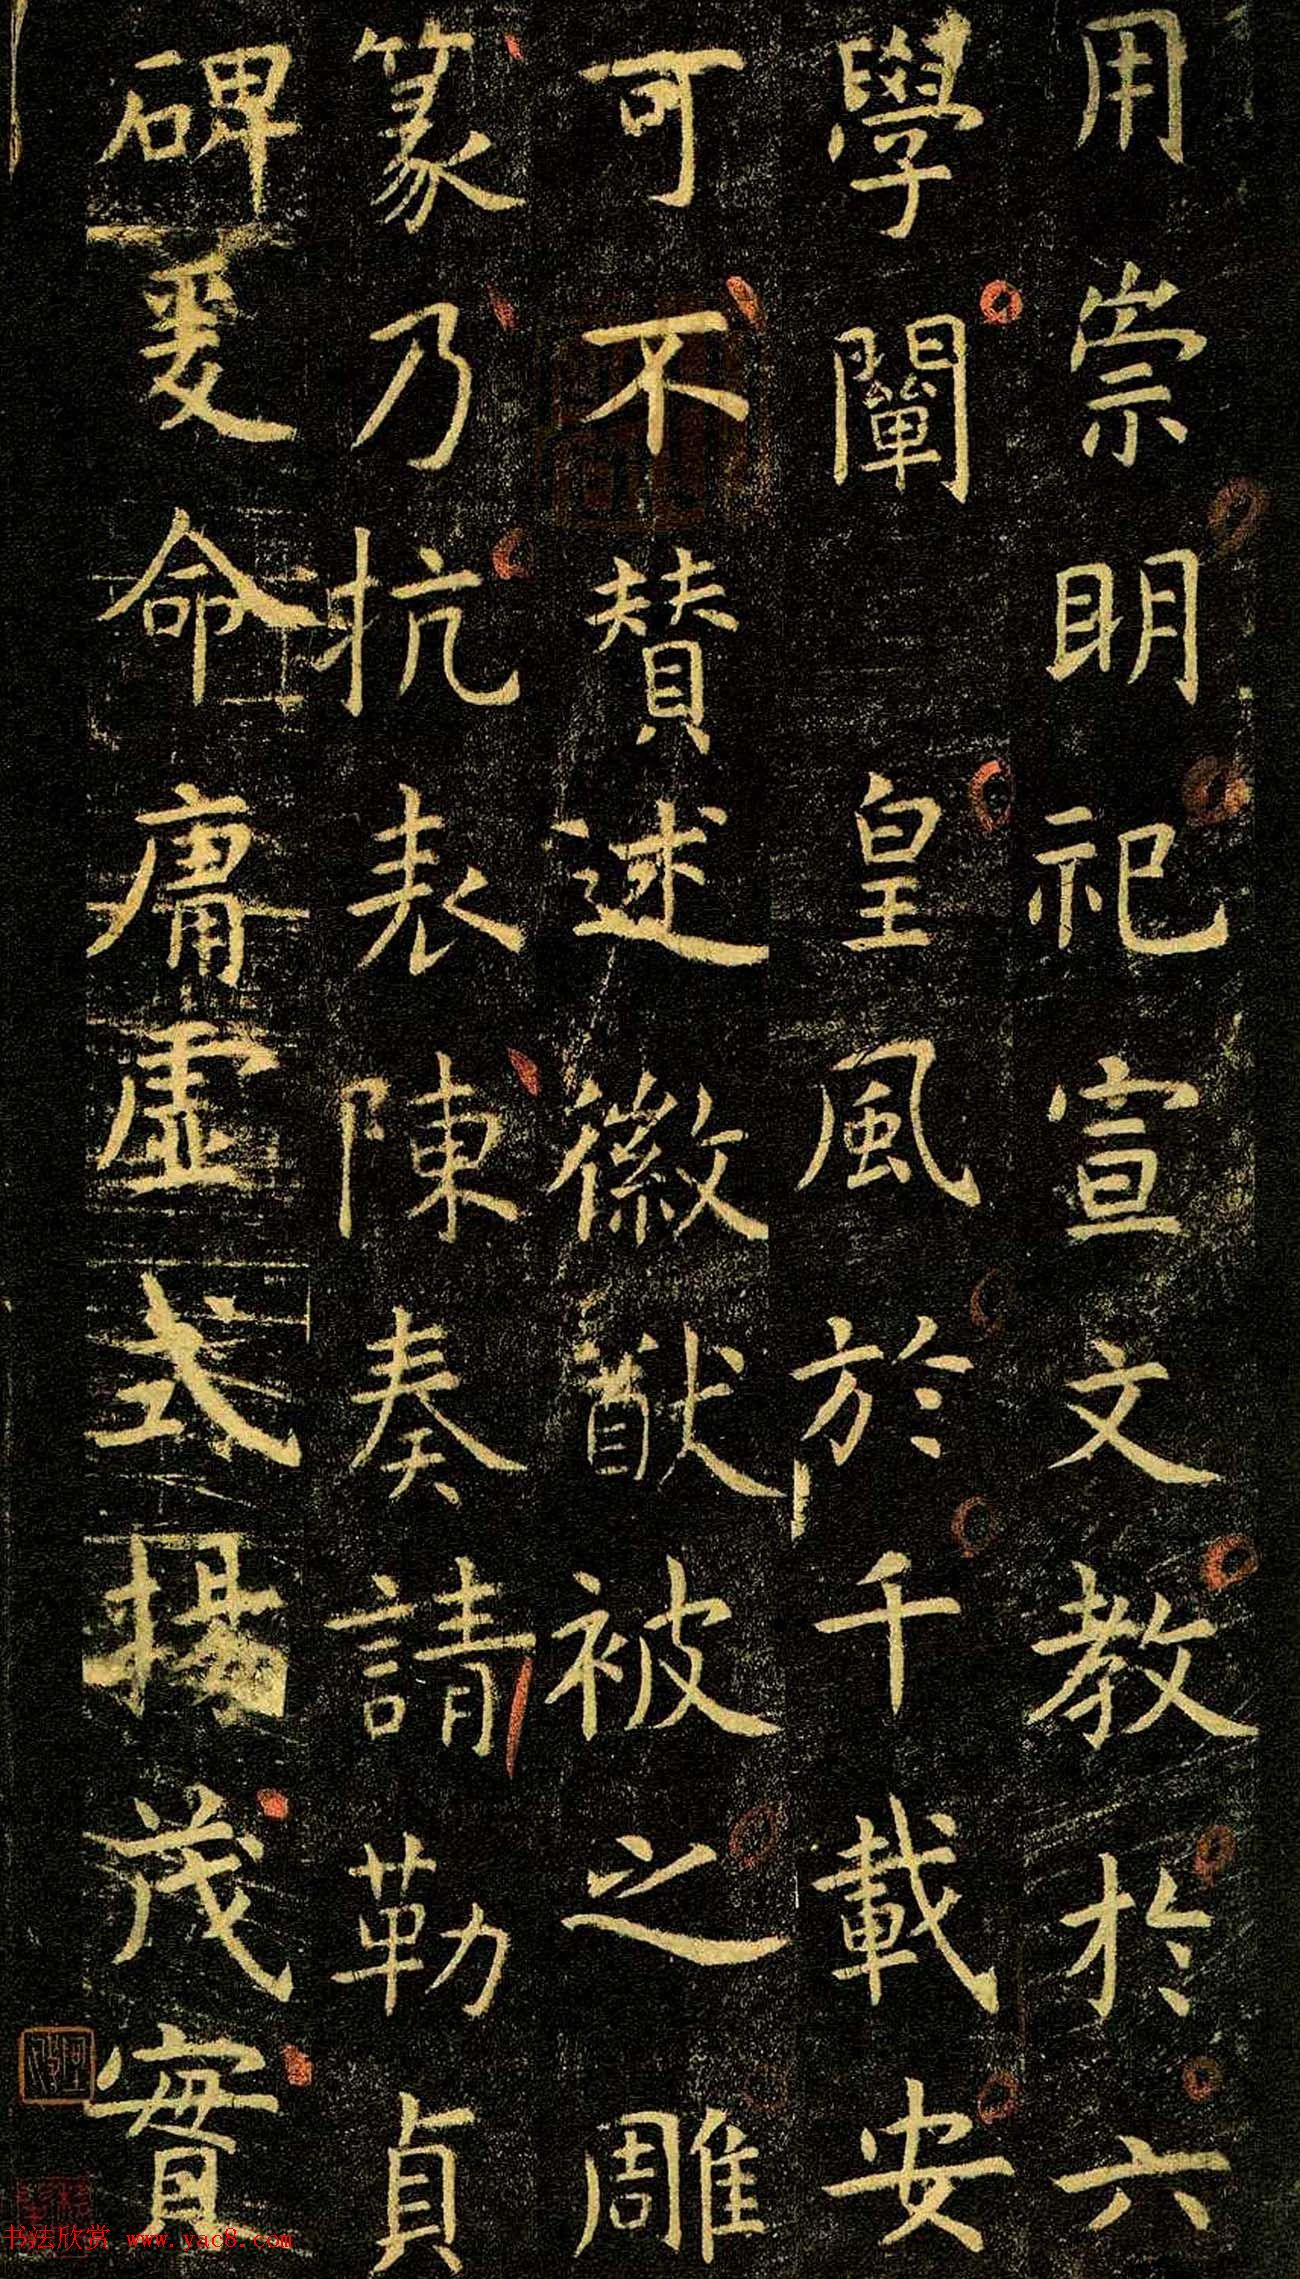 用崇明祀宣文教於六
學闡皇風於千載安
可不贊述徽猷被之雕
篆乃抗表陳奏請勒貞
碑爰命庸虛式揚茂實
书法欣赏 www.yac8.com